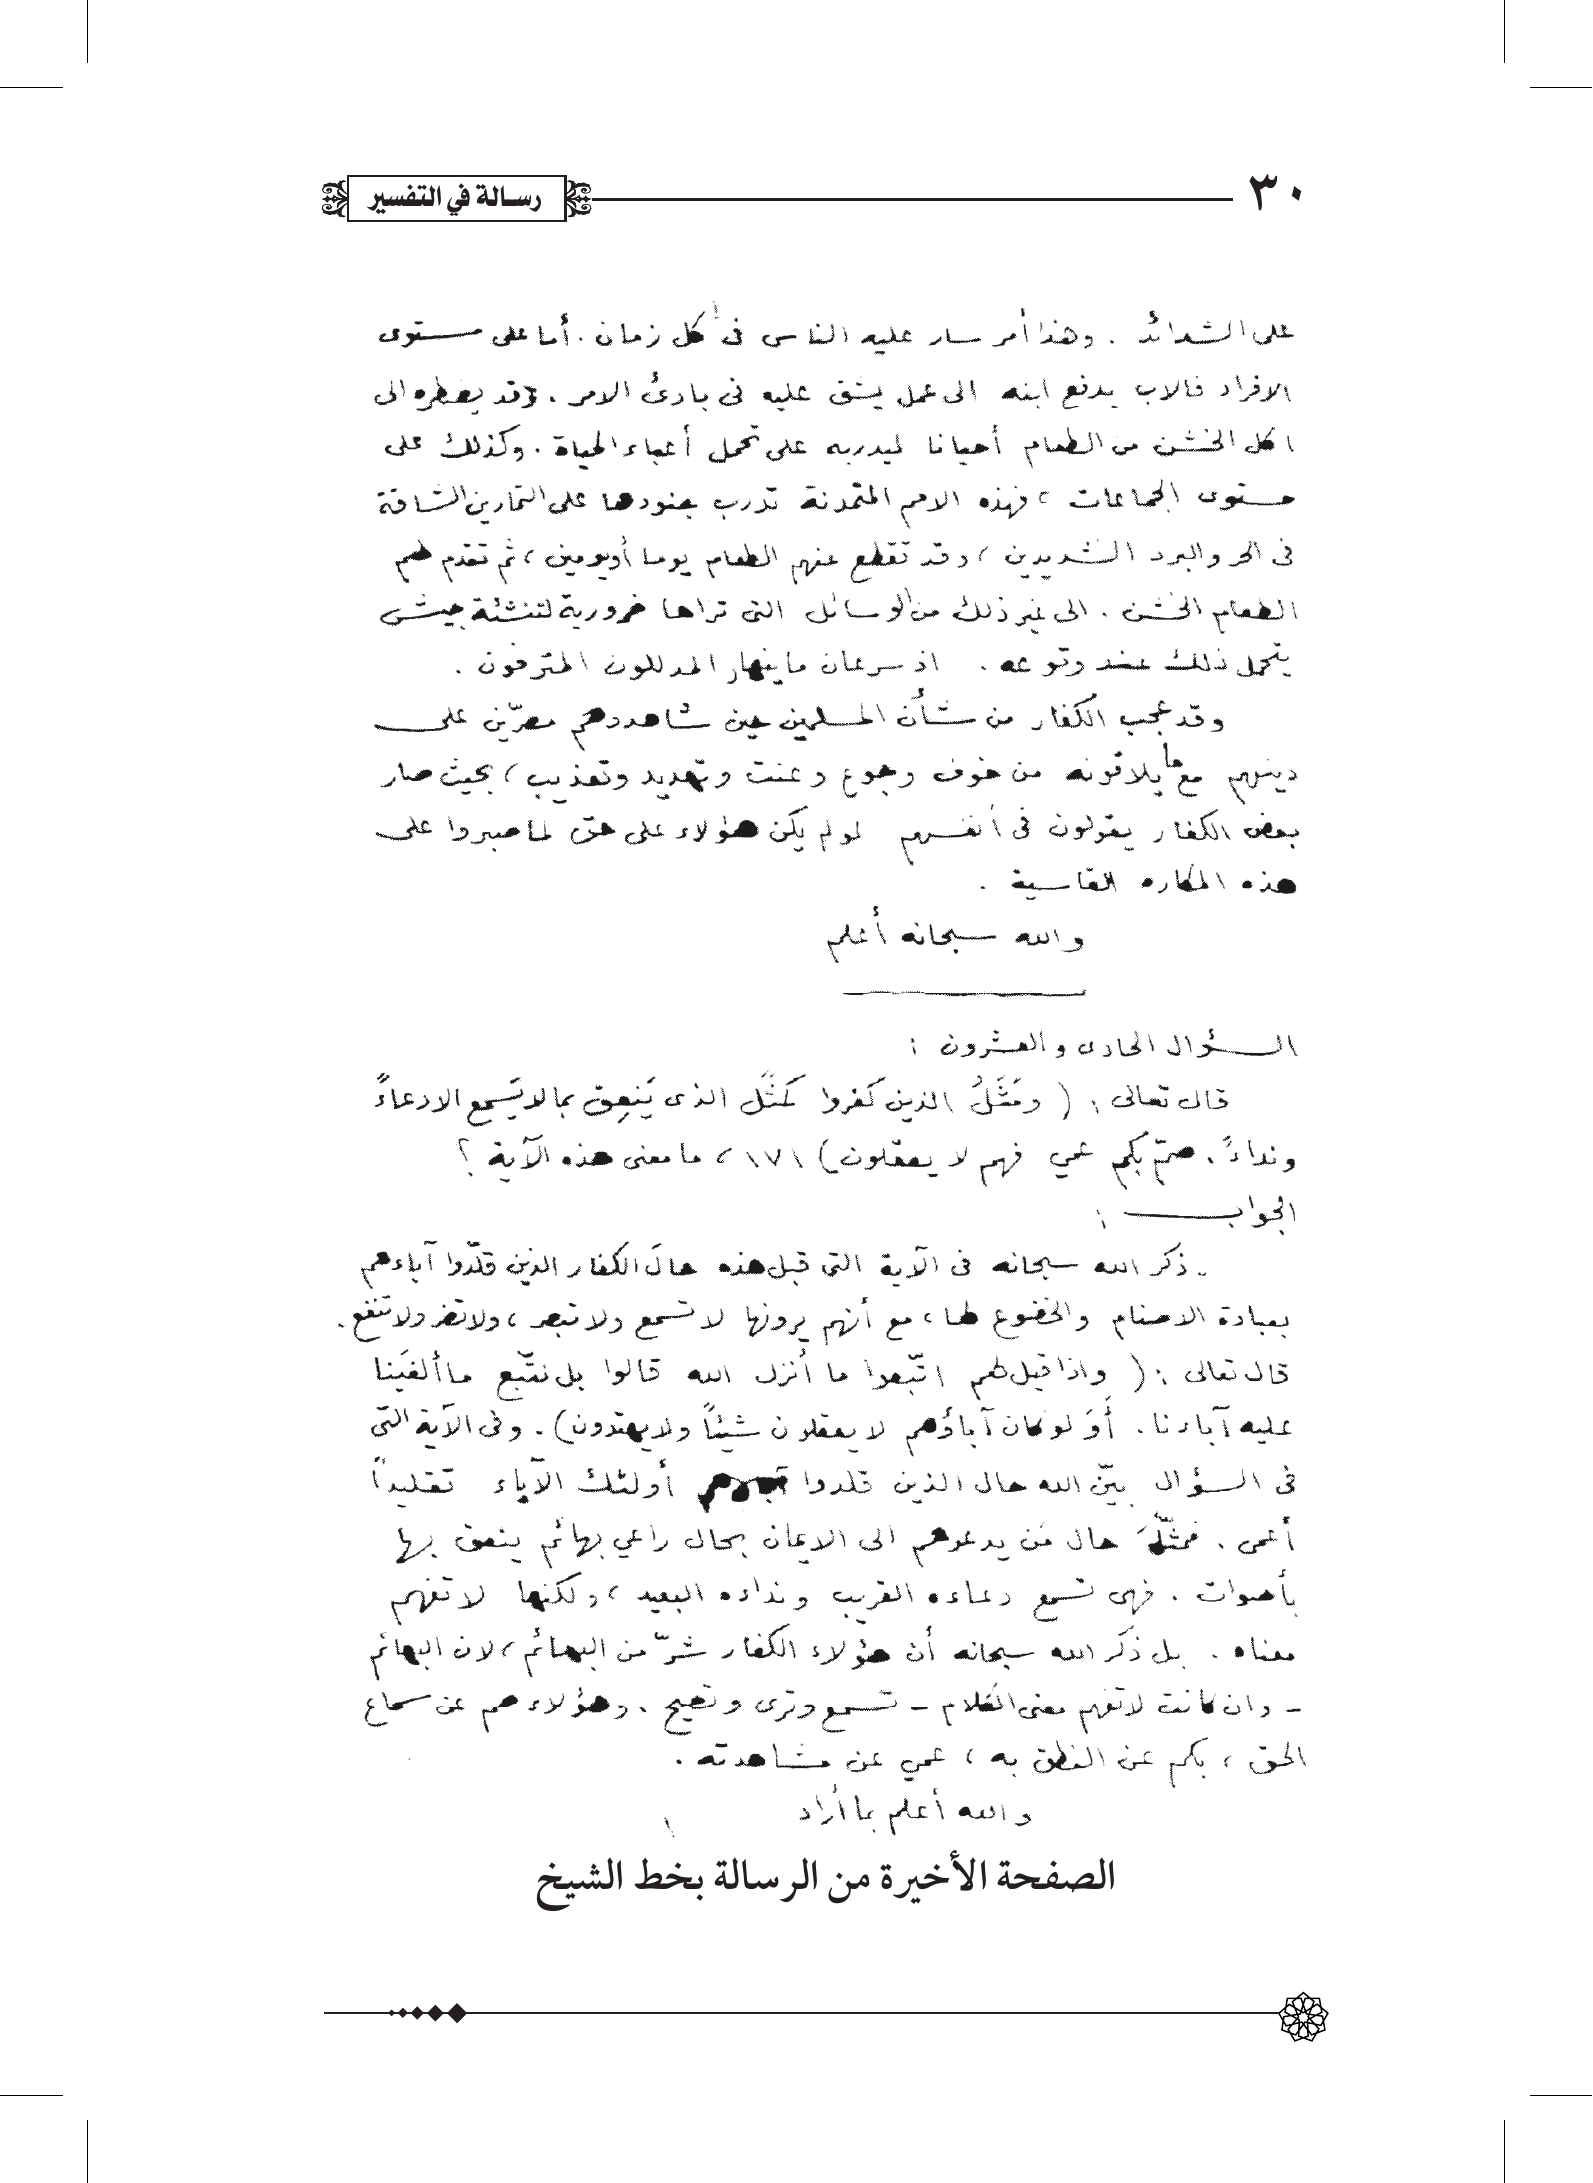 ٣٠
رسالة في التفسير
على الشدائد . وهذا أمر سار عليه الناس فى كل زمان . أما على مستوى
الافراد فالاب يدفع ابنه الى عمل يشق عليه فى بادئ الامر . وقد يضطره الى
اكل الخشن من الطعام أحيانا ليدربه على تحمل أعباء الحياة . وكذلك على
مستوى الجماعات ، فهذه الامم المتمدنة تدرب جنودها على التمارين الشاقة
فى الحر والبرد الشديدين ، وقد تقطع عنهم الطعام يوما أو يومين ، ثم تقدم لهم
الطعام الخشن . الى غير ذلك من الوسائل التى تراها ضرورية لتنشئة جيش
يتحمل ذلك عند وقوعه . اذ سرعان ما ينهار المدللون المترفون .
وقد عجب الكفار من شأن المسلمين حين شاهدوهم مصرّين على
دينهم مع ما يلاقونه من خوف وجوع وعنت وتهديد وتعذيب ، بحيث صار
بعض الكفار يقولون فى أنفسهم لو لم يكن هؤلاء على حق لما صبروا على
هذه المكاره القاسية .
والله سبحانه أعلم
السؤال الحادى والعشرون :
قال تعالى : ( ومَثَلُ الذين كَفروا كَمَثَل الذى يَنعِق بما لا يَسمع الا دعاءً
ونداءً . صمّ بكم عمي فهم لا يعقلون ) ١٧١ ، ما معنى هذه الآية ؟
الجواب :
ذكر الله سبحانه فى الآية التى قبل هذه حالَ الكفار الذين قلّدوا آباءهم
بعبادة الاصنام والخضوع لها ، مع أنهم يرونها لا تسمع ولا تبصر ، ولا تضر ولا تنفع .
قال تعالى : ( واذا قيل لهم اتّبعوا ما أنزل الله قالوا بل نتّبع ما ألفَينا
عليه آباءنا . أَوَ لو كان آباؤهم لا يعقلون شيئاً ولا يهتدون ) . وفى الآية التى
فى السؤال بيّن الله حال الذين قلدوا أولئك الآباء تقليداً
أعمى . فمثّلَ حال مَن يدعوهم الى الايمان بحال راعي بهائم ينعق بها
بأصوات . فهى تسمع دعاءه القريب ونداءه البعيد ، ولكنها لا تفهم
معناه . بل ذكَر الله سبحانه أن هؤلاء الكفار شرّ من البهائم ، لان البهائم
- وان كانت لا تفهم معنى الكلام - تسمع وترى وتصيح . وهؤلاء صم عن سماع
الحق ، بكم عن النطق به ، عمي عن مشاهدته .
والله أعلم بما أراد
الصفحة الأخيرة من الرسالة بخط الشيخ